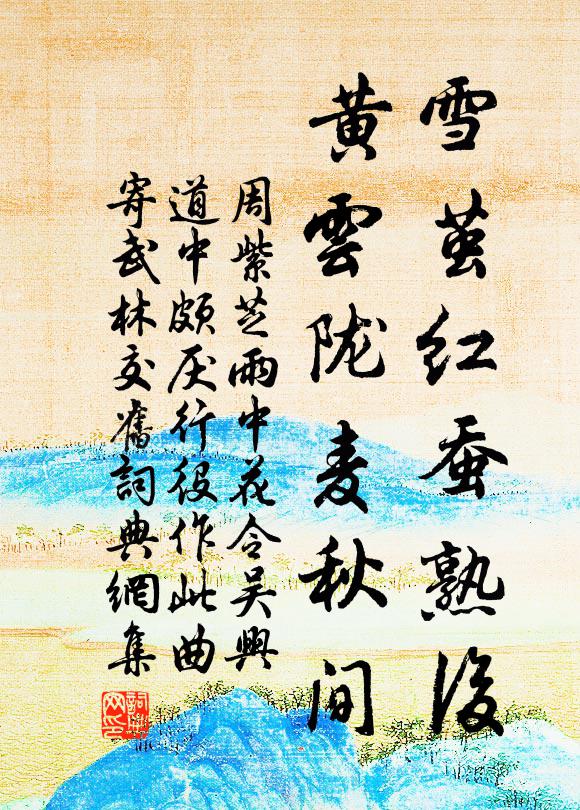 雪茧红蚕熟后
黄云陇麦秋间
周紫芝雨中花令吴興
道中頗厌行役作此曲
寄武林交舊詞典網集